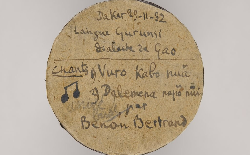 Dakar 29-11-82
Langue Gurunsi
Dialecte de Gao
Chants 1 Vuro Kabo nuū
2 Dalemena
par
Benon Bertrand